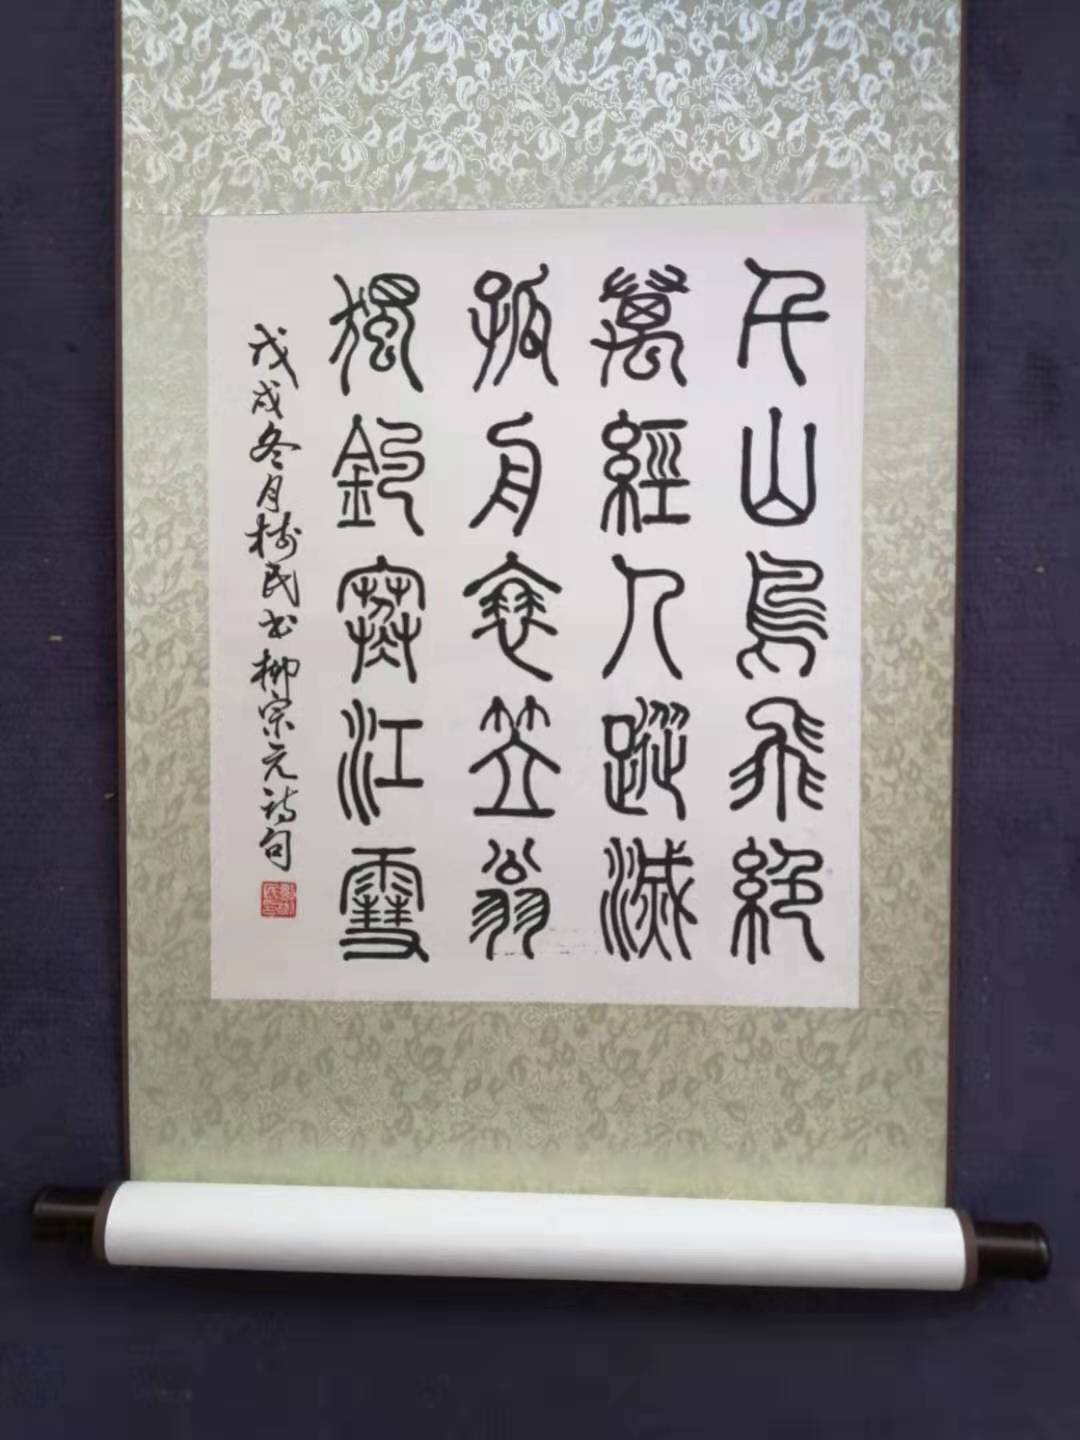 千山鳥飛絕
萬經人蹤滅
孤舟蓑笠翁
獨釣寒江雪
戊戌冬月樹民书柳宗元诗句